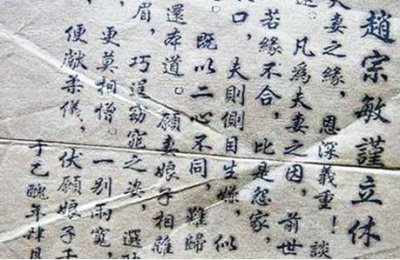 趙宗敏謹立休
夫妻之緣，恩深義重！談
。凡為夫妻之因，前世
若緣不合，比是怨家，
口，夫則側目生嫌，似
。既以二心不同，難歸
還本道。願妻娘子相離
眉，巧逞窈窕之姿，選
更莫相憎。一別兩寬，
便獻柔儀，伏願娘子千
于乙醜年肆月